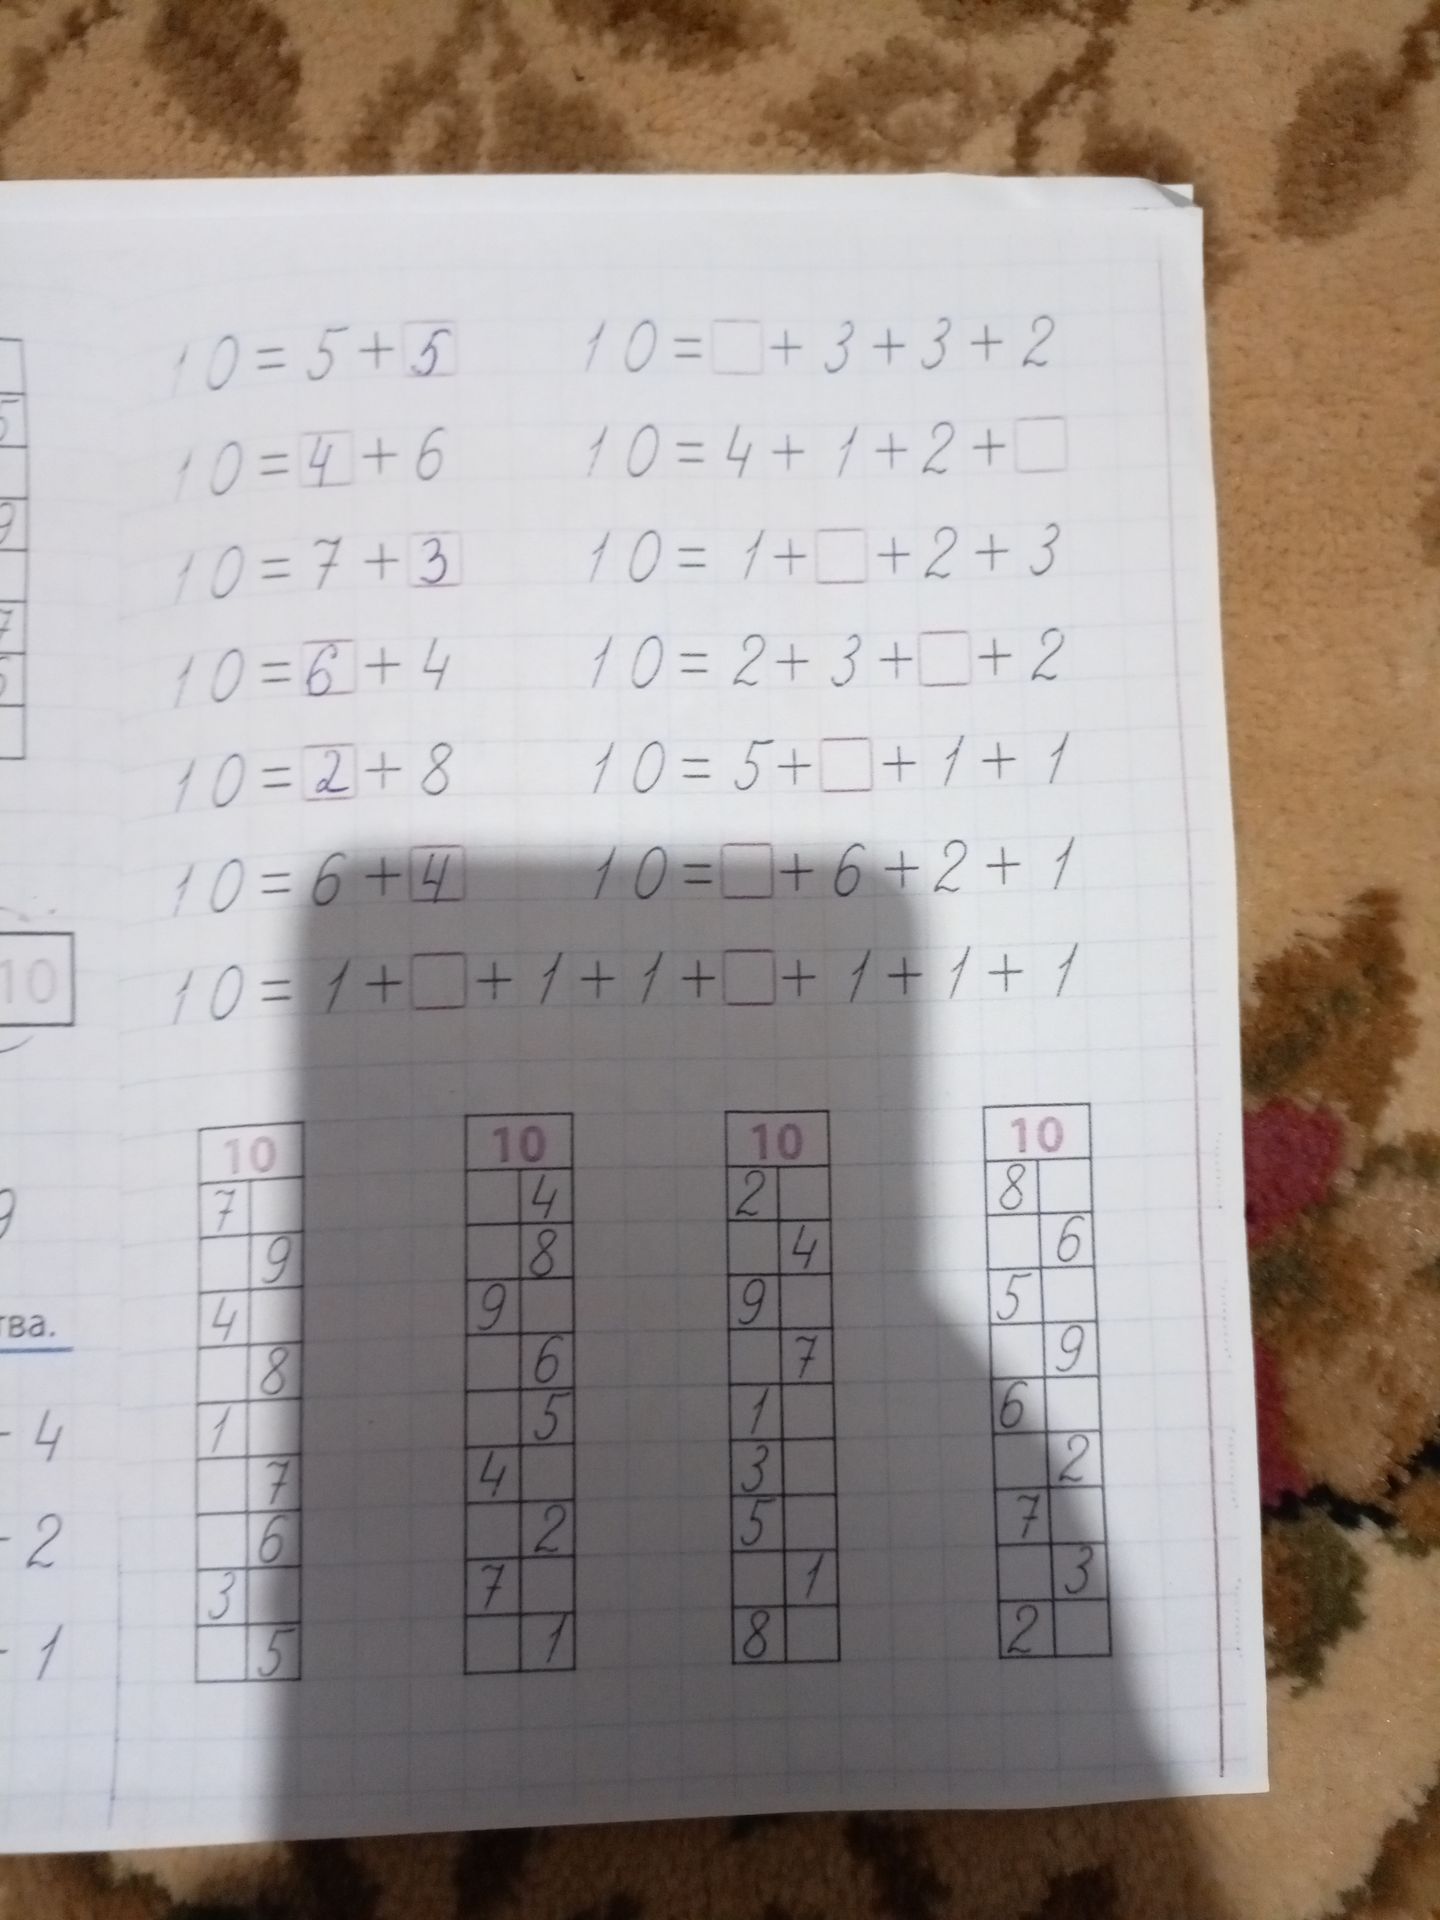 10 = 5 + 5    10 = □ + 3 + 3 + 2
10 = 4 + 6    10 = 4 + 1 + 2 + □
10 = 7 + 3    10 = 1 + □ + 2 + 3
10 = 6 + 4    10 = 2 + 3 + □ + 2
10 = 2 + 8    10 = 5 + □ + 1 + 1
10 = 6 + 4    10 = □ + 6 + 2 + 1
10 = 1 + □ + 1 + 1 + □ + 1 + 1 + 1
5
9
7
10
9
тва.
- 4
- 2
- 1
10
7
9
4
8
1
7
6
3
5
10
4
8
9
6
5
4
2
7
1
10
2
4
9
7
1
3
5
1
8
10
8
6
5
9
6
2
7
3
2